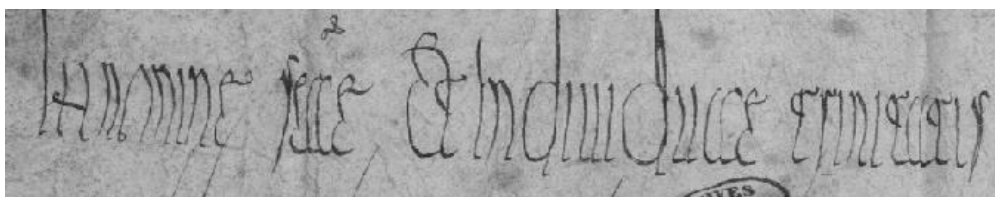 In nomine sc̄ae Et Indiuiduae trinitatis